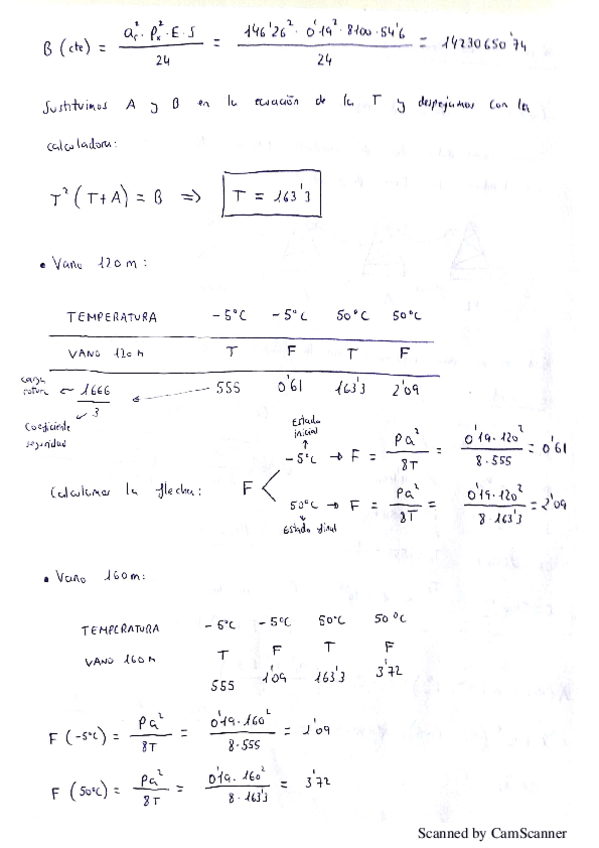 B (cte) = ar². Px². E. S / 24 = 146'26². 0'19². 8100. 54'6 / 24 = 14230650'74
Sustituimos A y B en la ecuación de la T y despejamos con la
calculadora:
T² (T+A) = B => T = 163'3
• Vano 120m:
TEMPERATURA -5°C -5°C 50°C 50°C
VANO 120m T F T F
carga rotura 1666 / 3 555 0'61 163'3 2'09
Coeficiente seguridad
Estado inicial
-5°C → F = Pa² / 8T = 0'19. 120² / 8. 555 = 0'61
Calculamos la flecha: F
50°C → F = Pa² / 8T = 0'19. 120² / 8. 163'3 = 2'09
Estado final
• Vano 160m:
TEMPERATURA -5°C -5°C 50°C 50°C
VANO 160m T F T F
555 1'09 163'3 3'72
F (-5°C) = Pa² / 8T = 0'19. 160² / 8. 555 = 1'09
F (50°C) = Pa² / 8T = 0'19. 160² / 8. 163'3 = 3'72
Scanned by CamScanner